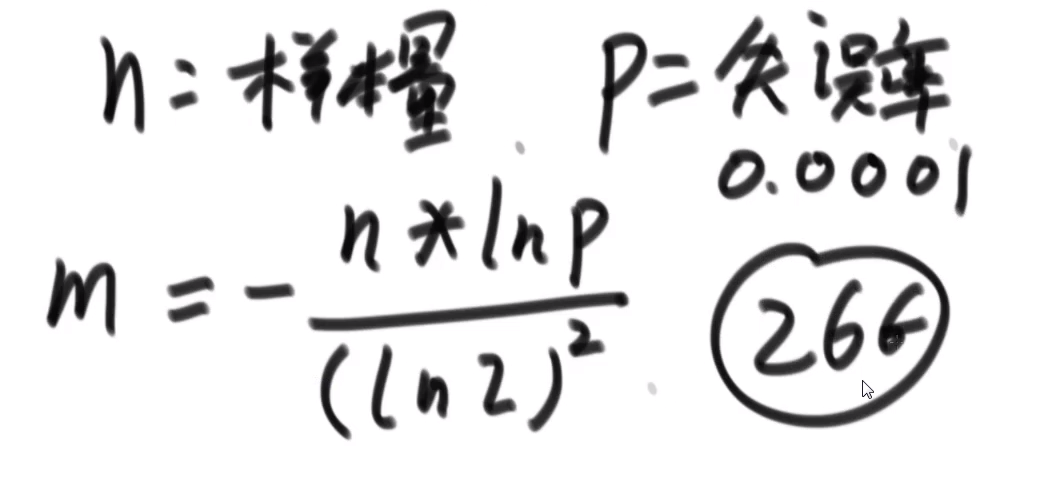 n = 样量 p = 失误率
0.0001
m = - n * ln p
(ln 2)²
26G